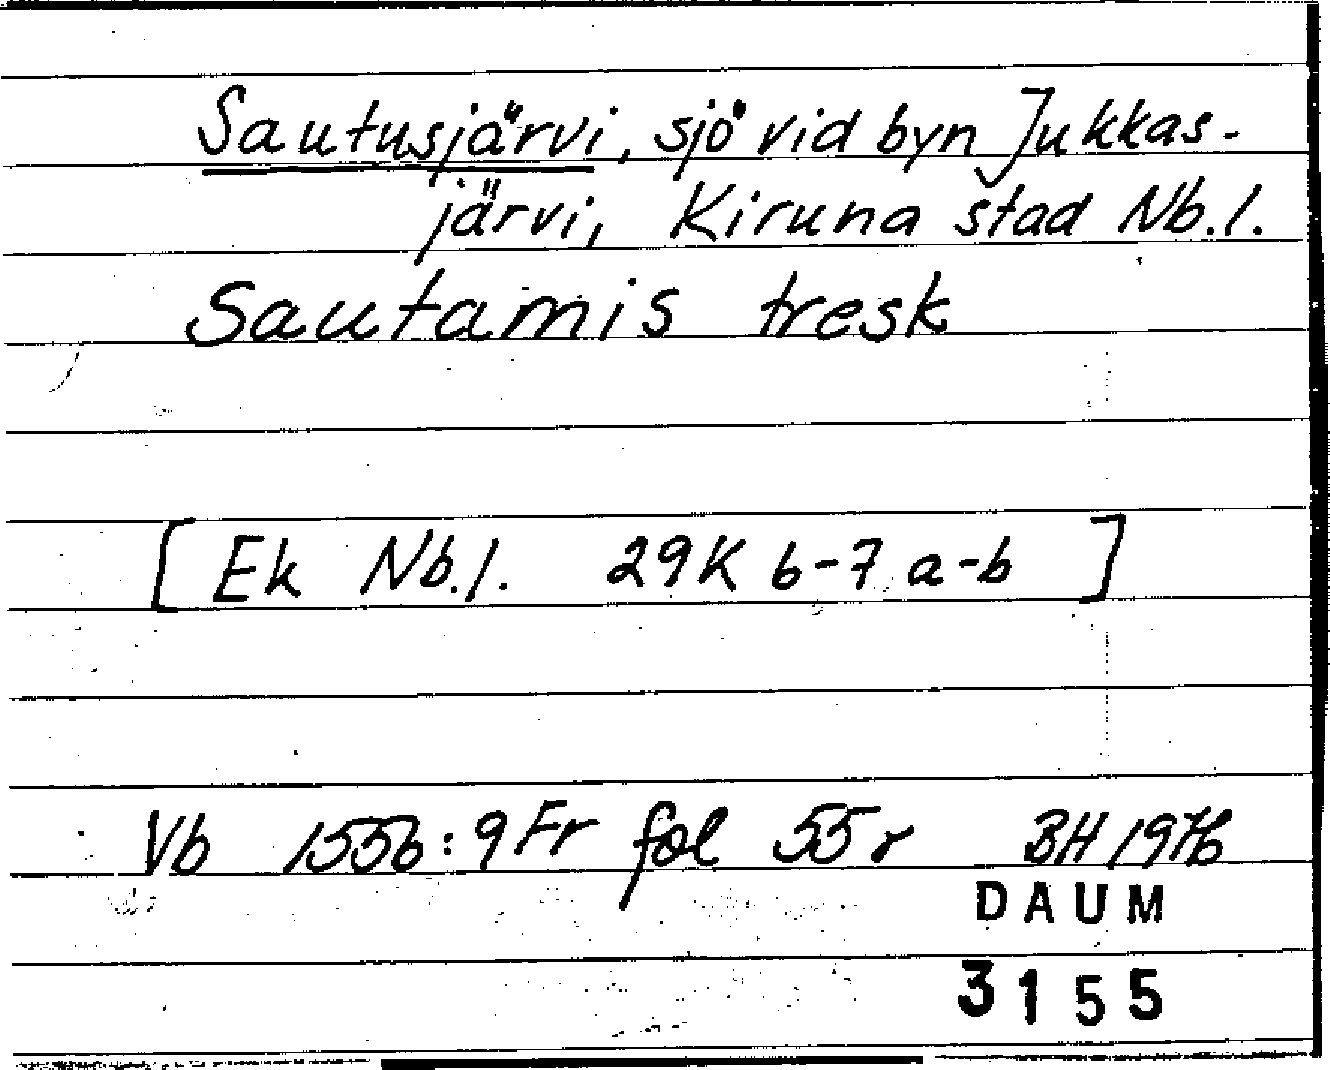 Sautusjärvi, sjö vid byn Jukkas-
järvi, Kiruna stad Nb.l.
Sautamis tresk
[Ek Nb.l. 29K 6-7 a-b]
Vb 1556:9 Fr fol 55 r BH 1976
DAUM
3155